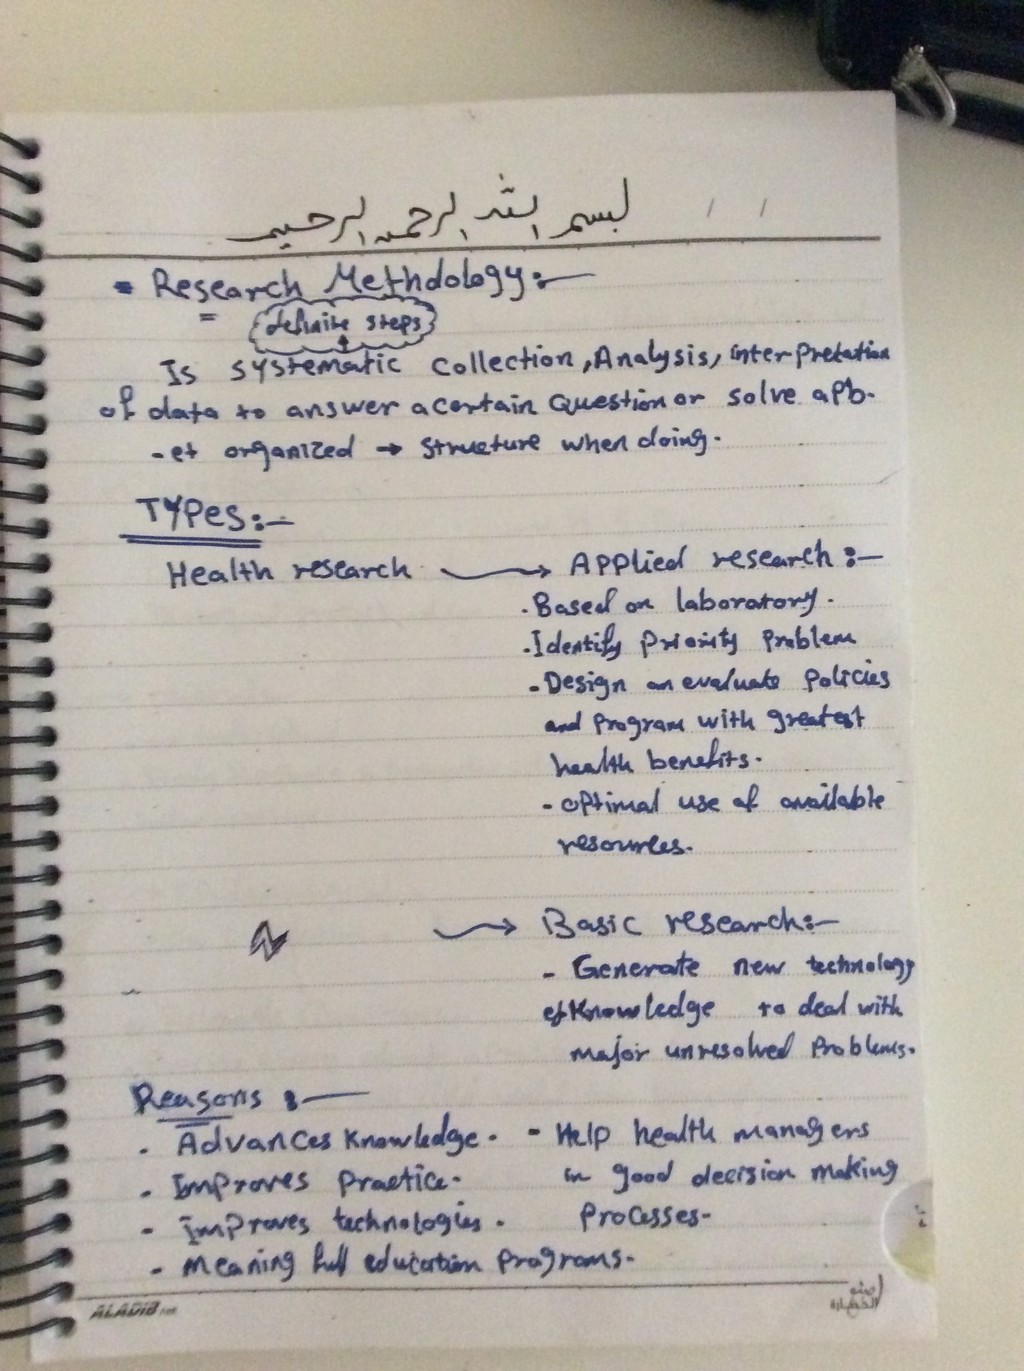 بسم الله الرحمن الرحيم
/ /
Research Methdology:-
definite steps
Is systematic collection, Analysis, interpretation
of data to answer a certain Question or solve a Pb.
- et organized → structure when doing.
TYPes:-
Health research → Applied research:-
. Based on laboratory.
. Identify Priority Problem
- Design an evaluate Policies
and Program with greatest
health benefits.
- optimal use of available
resources.
→ Basic research:-
- Generate new technology
et Knowledge to deal with
major unresolved Problems.
Reasons :-
. Advances Knowledge.
- Improves Practice.
- improves technologies.
- Meaning full education Programs.
- Help health managers
in good decision making
Processes-
ALADIB